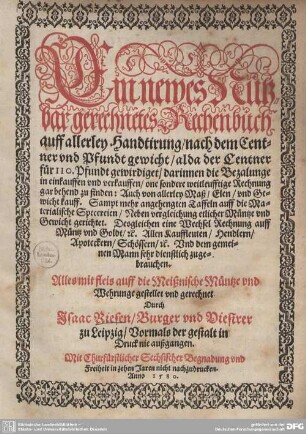 Ein newes Nutz
bar gerechnetes Rechenbuch
auff allerley Handtirung / nach dem Cent-
ner vnd Pfundt gewicht / alda der Centner
für 110. Pfundt gewirdiget / darinnen die Bezalunge
in einkauffen vnd verkauffen / one sondere weitleufftige Rechnung
gar behend zu finden: Auch von allerley Maß / Elen / vnd Ge-
wicht kauff. Sampt mehr angehengten Taffeln auff die Ma-
terialische Specereien / Neben vergleichung etlicher Müntz vnd
Gewicht gerichtet. Desgleichen eine Wechsel Rechnung auff
Müntz vnd Goldt / ꝛc. Allen Kauffleuten / Hendlern /
Apoteckern / Schössern / ꝛc. Vnd dem gemei-
nen Mann sehr dienstlich zuge-
brauchen.
Alles mit fleis auff die Meißnische Müntze vnd
Wehrunge gestellet vnd gerechnet
Durch
Isaac Riesen / Burger vnd Visierer
zu Leipzig / Vormals der gestalt in
Druck nie außgangen.
Mit Churfürstlicher Sechsischer Begnadung vnd
Freiheit in zehen Jaren nicht nachzudrucken.
Anno 1580.